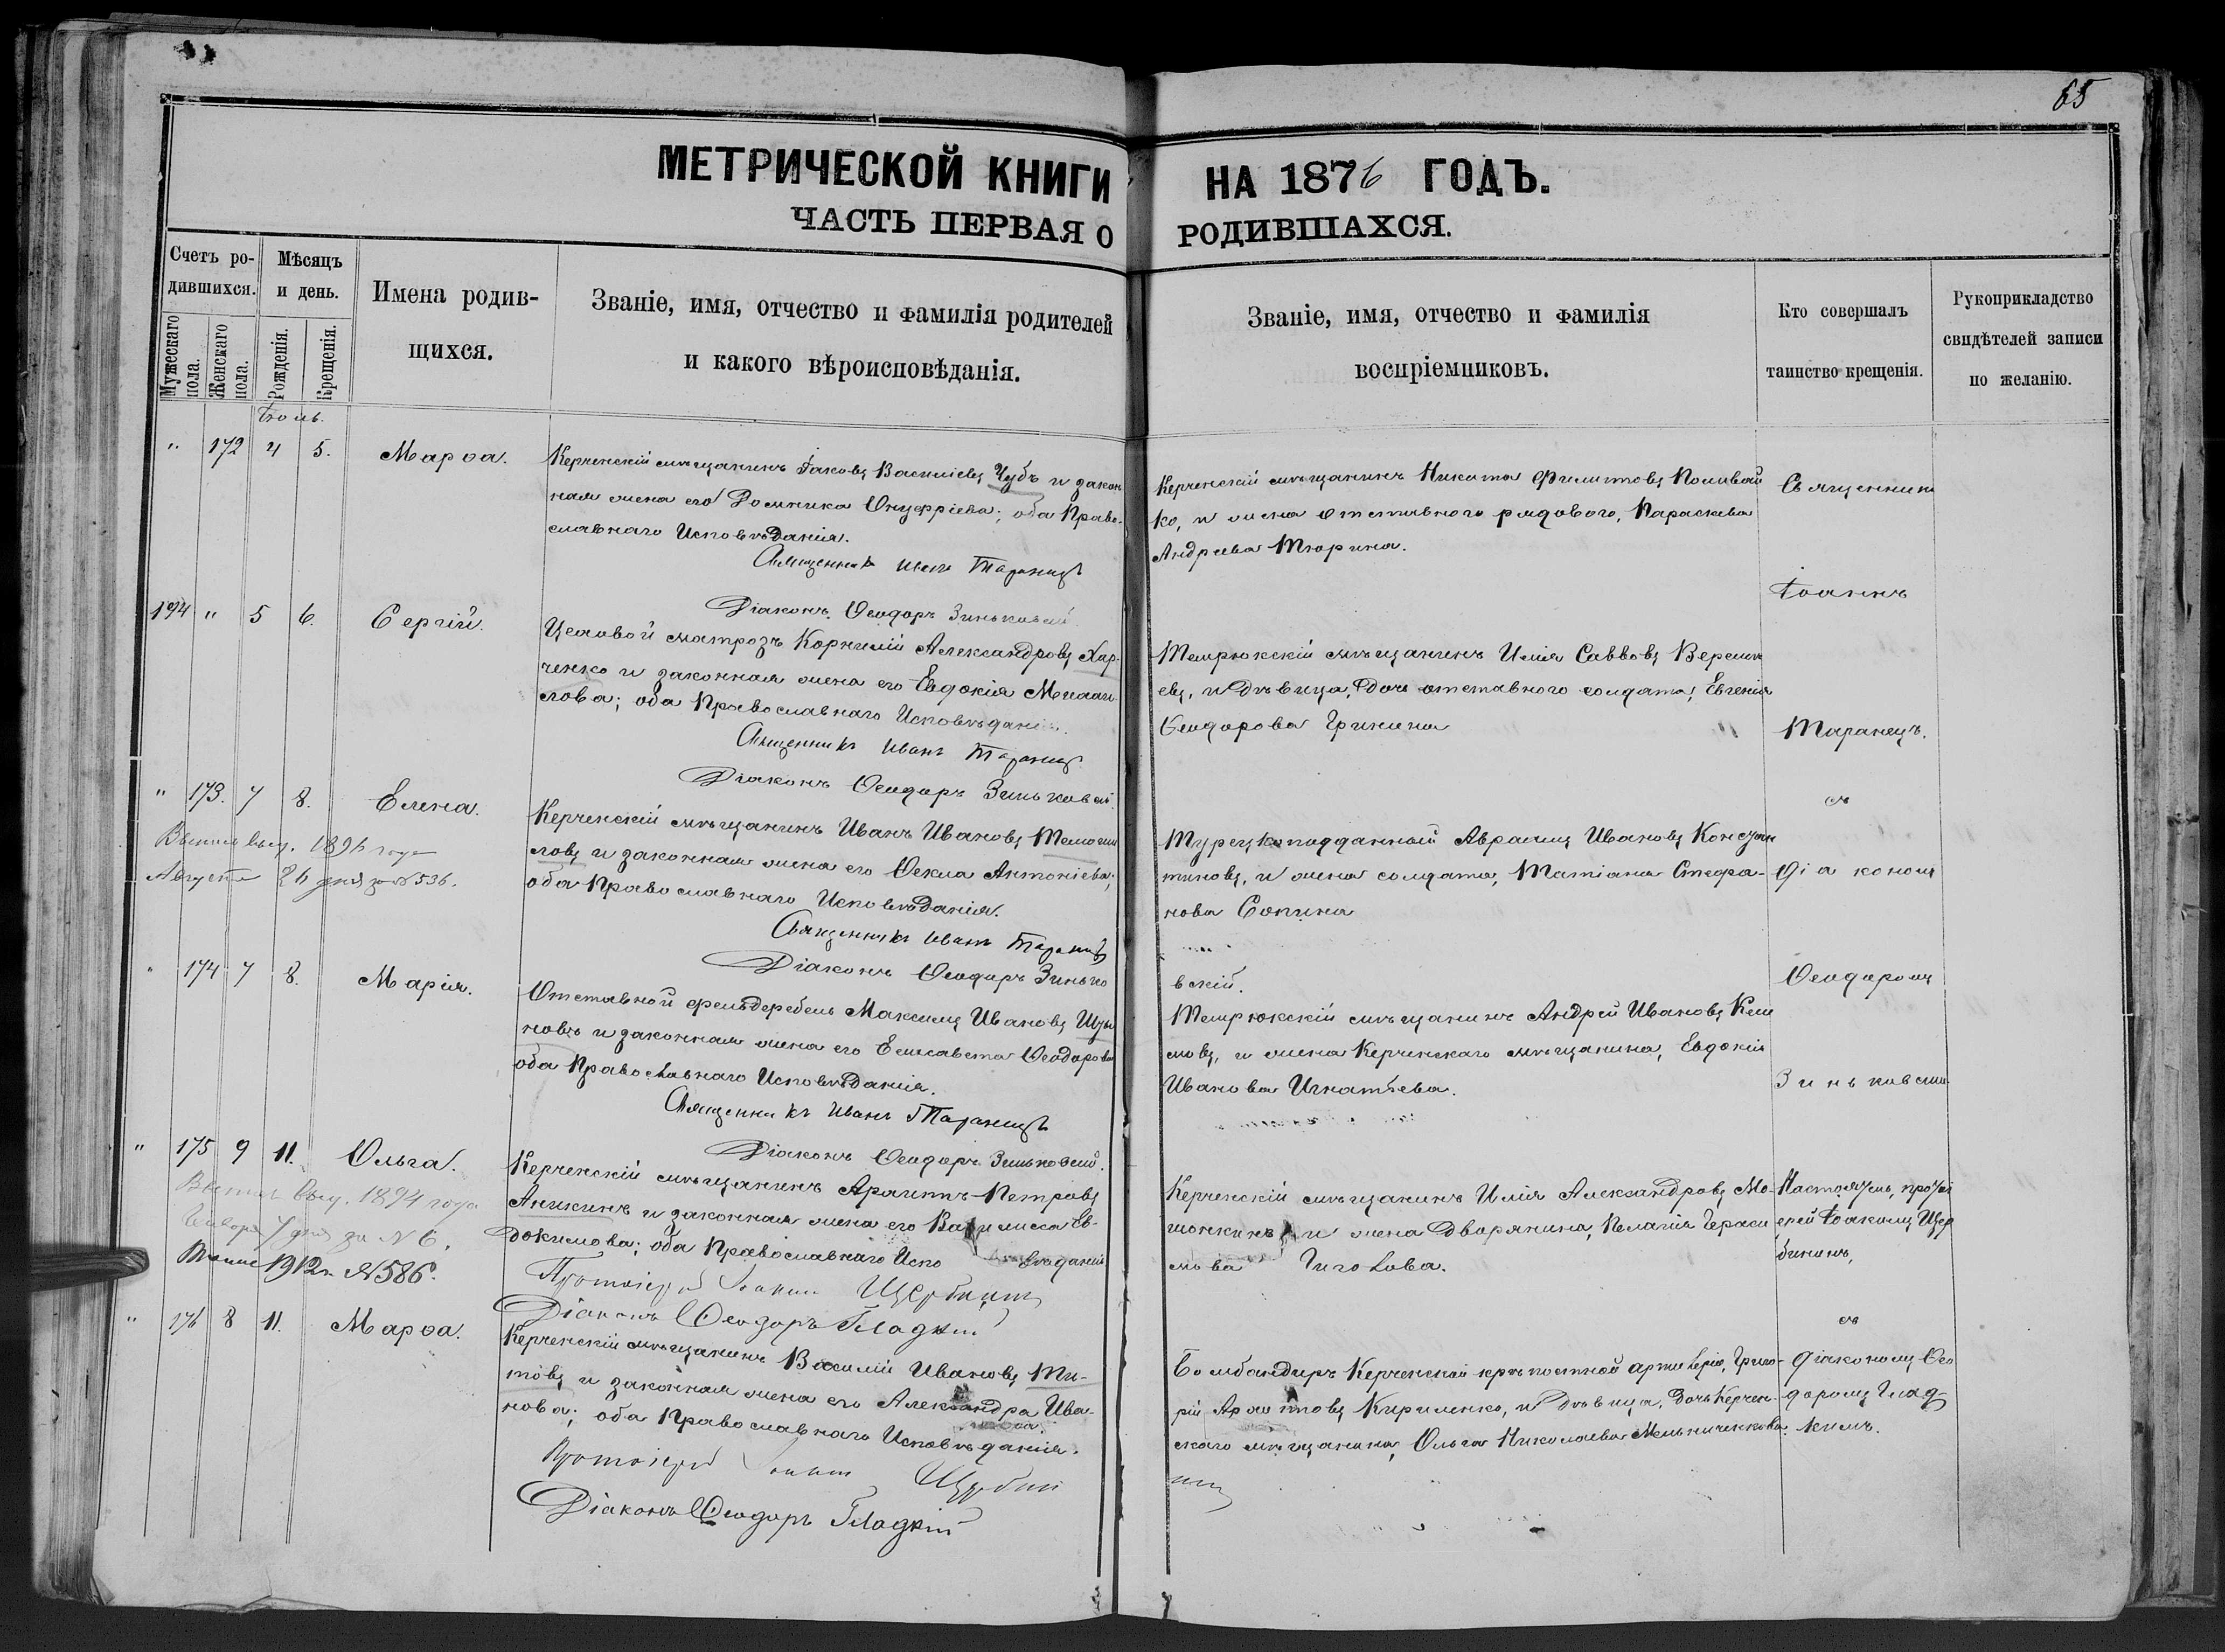 65
МЕТРИЧЕСКОЙ КНИГИ НА 1876 ГОДЪ.
ЧАСТЬ ПЕРВАЯ О РОДИВШАХСЯ.
Счетъ ро-
дившихся.
Мужескаго пола.
Женскаго пола.
Мѣсяцъ
и день.
Рожденія.
Крещенія.
Имена родив-
шихся.
Званіе, имя, отчество и фамилія родителей
и какого вѣроисповѣданія.
Званіе, имя, отчество и фамилія
воспріемниковъ.
Кто совершалъ
таинство крещенія.
Рукоприкладство
свидѣтелей записи
по желанію.
Іюль.
" 172 4 5. Марѳа.
Керченскій мѣщанинъ Іаковъ Василіевъ Чубъ и закон
ная жена его Домника Онуфріева; оба Право-
славнаго Исповѣданія.
Священникъ Иванъ Таранецъ
Діаконъ Ѳеодоръ Зиньковскій
Керченскій мѣщанинъ Никита Филиповъ Поливай
ко, и жена отставного рядового, Параскева
Андреева Тюрина.
194 " 5 6. Сергій.
Целовой матрозъ Корнилій Александровъ Хар-
ченко и законная жена его Евдокія Михаи-
лова; оба Православнаго Исповѣданія.
Священникъ Иванъ Таранецъ
Діаконъ Ѳеодоръ Зиньковскій.
Темрюкскій мѣщанинъ Илія Саввовъ
евъ, и дѣвица, дочь отставного солдата, Евгенія
Ѳеодорова Гринина
" 173. 7 8. Елена.
1896 года
Августа 26 дня за № 536.
Керченскій мѣщанинъ Иванъ Ивановъ
ловъ и законная жена его Ѳекла Антоніева;
оба Православнаго Исповѣданія.
Священникъ Иванъ Таранецъ
Діаконъ Ѳеодоръ Зинько
вскій.
Турецкоподданный Авраамъ Ивановъ Констан
тиновъ, и жена солдата, Татіана Стефа-
нова Сопина
" 174 7 8. Марія.
Отставной фельдфебель Максимъ Ивановъ
новъ и законная жена его Елисавета Ѳеодорова
оба Православнаго Исповѣданія.
Священникъ Иванъ Таранецъ
Діаконъ Ѳеодоръ Зиньковскій.
Темрюкскій мѣщанинъ Андрей Ивановъ
мовъ, и жена Керченскаго мѣщанина, Евдокія
Иванова Игнатьева.
Священник
Іоаннъ
Таранецъ.
съ
діакономъ
Ѳеодоромъ
Зиньковски
" 175 9 11. Ольга.
1894 года
Января 7 дня за № 6.
1912 г. № 586.
Керченскій мѣщанинъ Архипъ Петровъ
Аникинъ и законная жена его Ев-
докимова; оба Православнаго Испо вѣданія
Протоіерей Іоакимъ Щербининъ
Діаконъ Ѳеодоръ Гладкій
Керченскій мѣщанинъ Илія Александровъ Мо-
шонкинъ и жена дворянина, Пелагія Гераси
мова Чиголова.
Настоятель, протоі
ерей Іоакимъ Щер
бининъ,
съ
діакономъ Ѳео
доромъ Глад-
кимъ.
" 176 8 11. Марѳа.
Керченскій мѣщанинъ Василій Ивановъ Ти-
товъ и законная жена его Александра Ива-
нова; оба Православнаго Исповѣданія.
Протоіерей Іоакимъ Щербин
инъ
Діаконъ Ѳеодоръ Гладкій
Бомбандиръ Керченской крѣпостной артилеріи, Григо-
рій Архиповъ Кириленко, и дѣвица, дочь Керчен-
скаго мѣщанина, Ольга Николаева Мельниченкова.